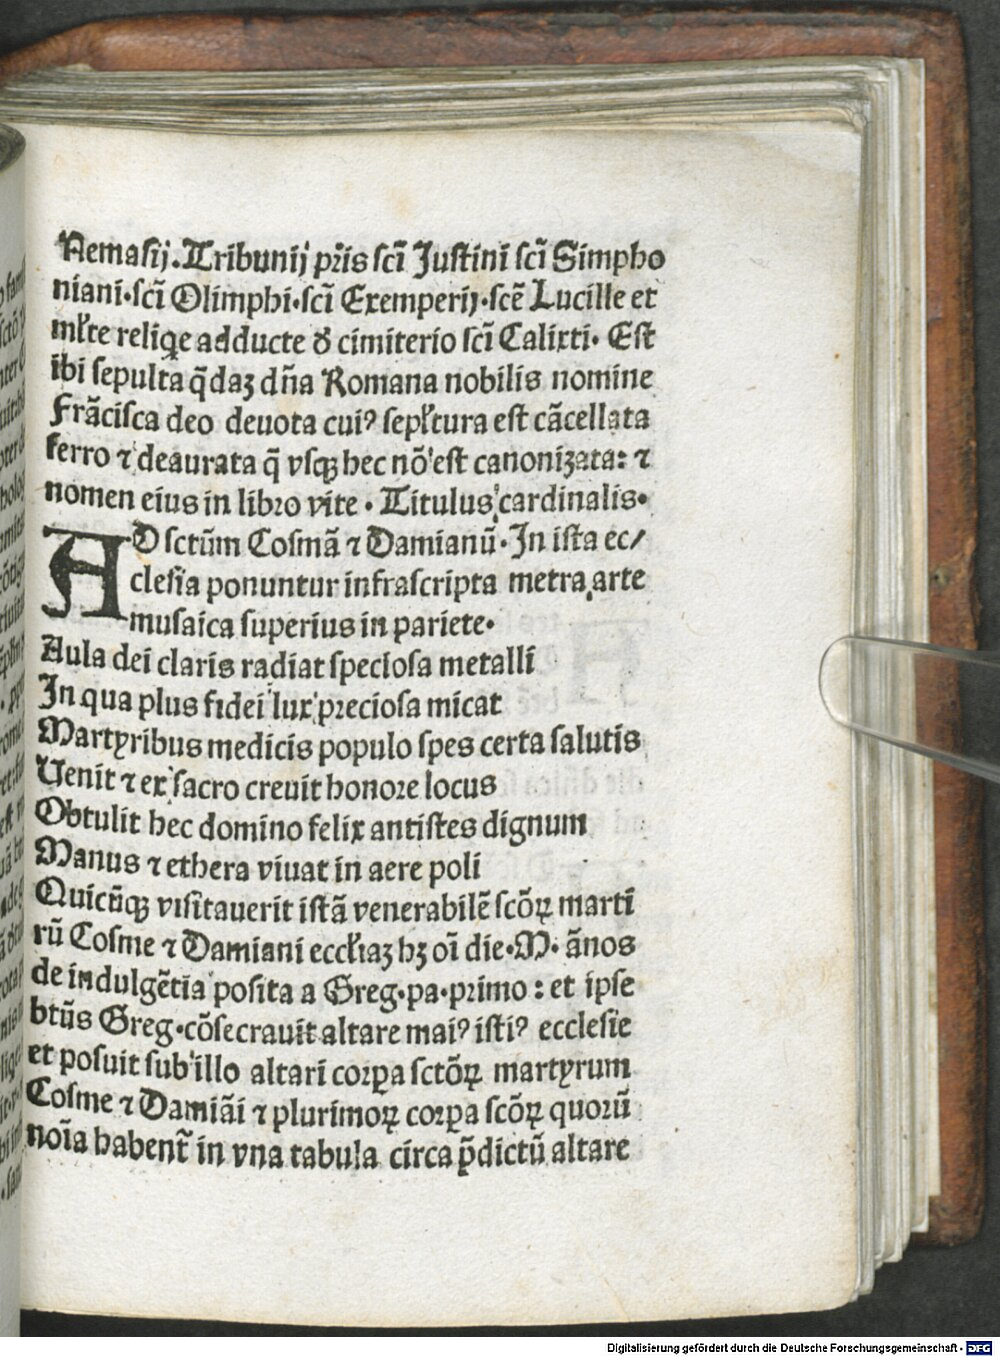 Nemasij. Tribunij pr̄is scī Justini scī Simpho
niani·scī Olimphi·scī Exemperij·scē Lucille et
ml̄te reliq̄e adducte ꝺ̄ cimiterio scī Calixti· Est
ibi sepulta q̄daꝫ dn̄a Romana nobilis nomine
Frācisca deo deuota cuiꝰ sepl̄tura est cācellata
ferro ⁊ deaurata q̄ vsqꝫ hec nō est canonizata: ⁊
nomen eius in libro vite · Titulus cardinalis·
AD sctūm Cosmā ⁊ Damianū·In ista ec/
clesia ponuntur infrascripta metra arte
musaica superius in pariete·
Aula dei claris radiat speciosa metalli
In qua plus fidei lux preciosa micat
Martyribus medicis populo spes certa salutis
Uenit ⁊ ex sacro creuit honore locus
Obtulit hec domino felix antistes dignum
Manus ⁊ ethera viuat in aere poli
Quicūqꝫ visitauerit istā venerabilē scōꝝ marti
rū Cosme ⁊ Damiani eccl̄iaꝫ hꝫ oī die·M· ānos
de indulgētia posita a Greg·pa·primo : et ipse
btūs Greg·cōsecrauit altare maiꝰ istiꝰ ecclesie
et posuit sub illo altari corpa sctōꝝ martyrum
Cosme ⁊ Damiāi ⁊ plurimoꝝ corpa scōꝝ quorū
noīa habent̄ in vna tabula circa p̄dictū altare
Digitalisierung gefördert durch die Deutsche Forschungsgemeinschaft - DFG